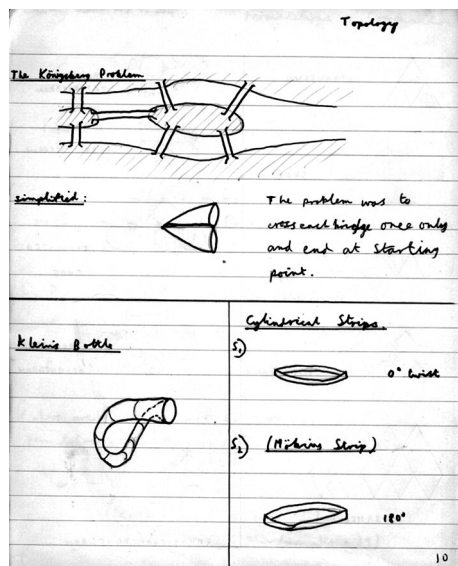 Topology
The Königsberg Problem
simplified:
The problem was to
cross each bridge once only
and end at Starting
point.
Klein's Bottle
Cylindrical Strips.
S1)
0° twist
S2) (Möbius Strip)
180°
10